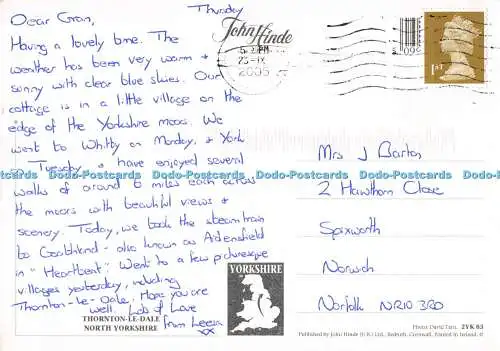 Thursday
Dear Gran,
Having a lovely time. The
weather has been very warm +
sunny with clear blue skies. Our
cottage is in a little village on the
edge of the Yorkshire moors. We
went to Whitby on Monday, + York
Tuesday + have enjoyed several
walks of around 6 miles each across
the moors with beautiful views +
scenery. Today, we took the steam train
to Goathland - also known as Aidensfield
in "Heartbeat". Went to a few picturesque
villages yesterday, including
Thornton-le-Dale. Hope you are
well. Lots of Love
from Leesa
xx
John Hinde
5. PM
2005
1ST
Mrs J Barton
2 Hawthorn Close
Spixworth
Norwich
Norfolk NR10 3RD
YORKSHIRE
THORNTON-LE-DALE
NORTH YORKSHIRE
Photo: David Tarn. 2YK 63
Published by John Hinde (U.K.) Ltd., Redruth, Cornwall. Printed in Ireland.
Dodo-Postcards Dodo-Postcards Dodo-Postcards Dodo-Postcards Dodo-Postcards